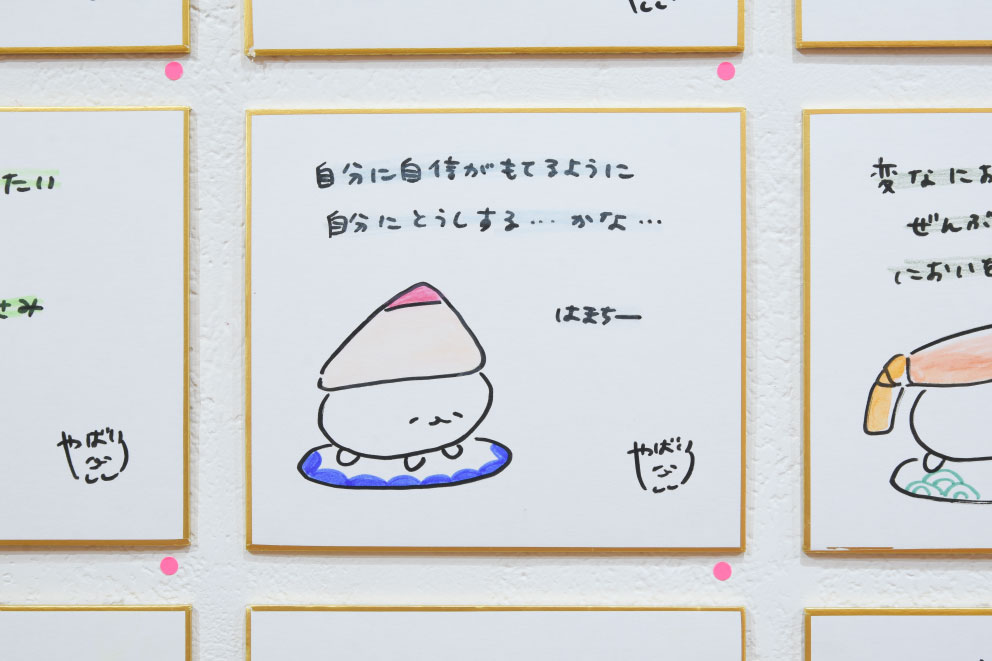 たい
さみ
やばい
自分に自信がもてるように
自分にとうしする…かな…
はまちー
やばい
変なにお
ぜんぶ
においを